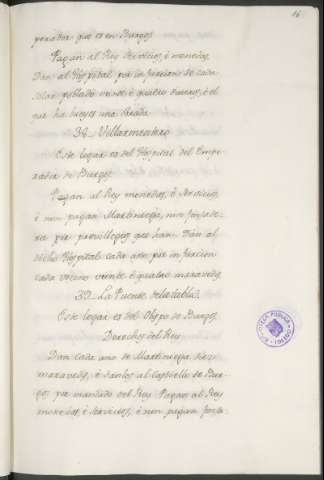 16
perador que es en Burgos.
Pagan al Rey Servicios, é monedas.
Dan al Hospital por infurcion de cada
solar poblado veinte é quatro dineros, é el
que ha bueyes una
38. Villarmentero
Este logar es del Hospital del Empe-
rador de Burgos.
Pagan al Rey monedas, é Servicios,
é non pagan Martiniega, nin fonsade-
ra por previllegios que han. Dan al
dicho Hospital cada año por infurcion
cada vecino veinte é quatro maravedis.
39. La Puente
Este logar es del Obispo de Burgos.
Derechos del Rey
Dan cada año de Martiniega
maravedis, é danlos al Castiello de Bur-
gos por mandado del Rey. Pagan al Rey
monedas, é servicios, é non pagan fonsa-
BIBLIOTECA PUBLICA